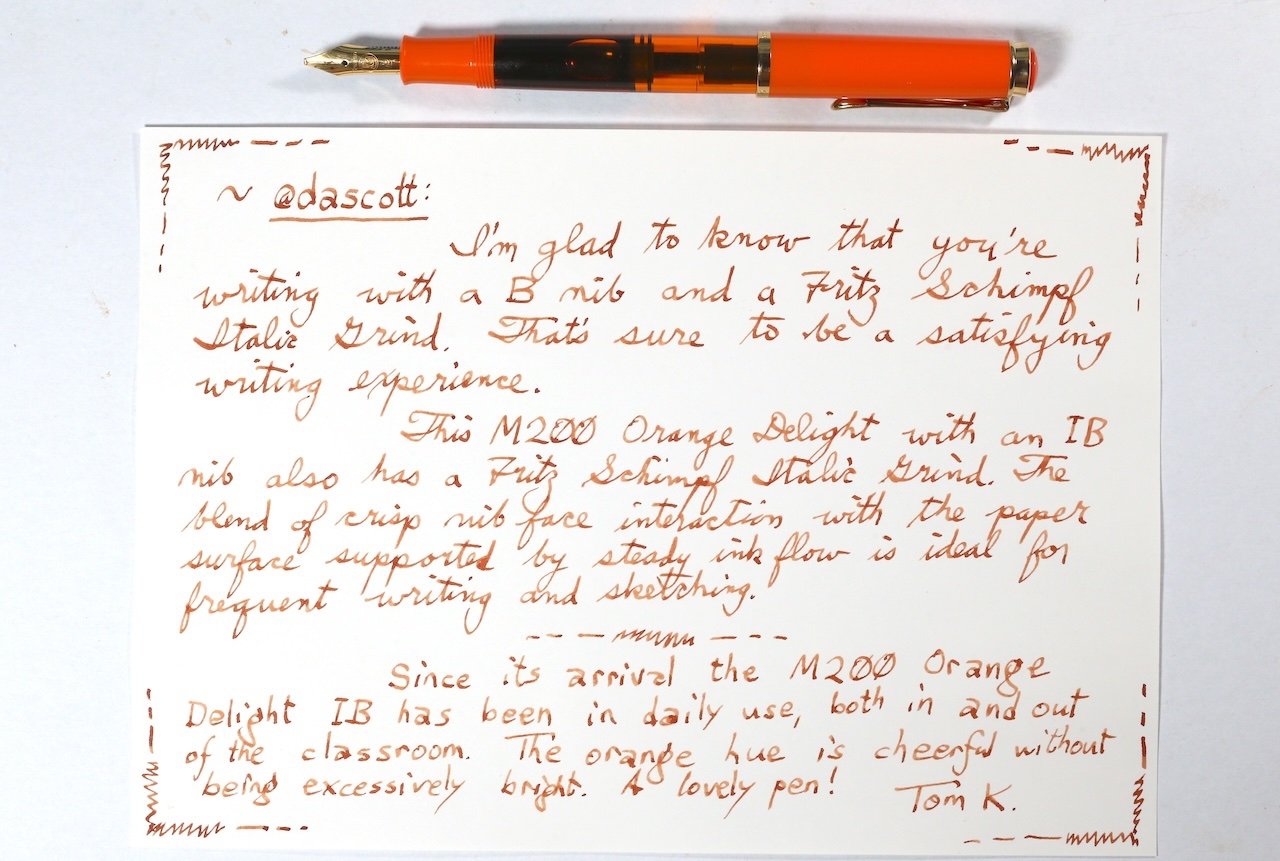 ~ @dascott:
I'm glad to know that you're
writing with a B nib and a Fritz Schimpf
Italic Grind. That's sure to be a satisfying
writing experience.
This M200 Orange Delight with an IB
nib also has a Fritz Schimpf Italic Grind. The
blend of crisp nib face interaction with the paper
surface supported by steady ink flow is ideal for
frequent writing and sketching.
Since its arrival the M200 Orange
Delight IB has been in daily use, both in and out
of the classroom. The orange hue is cheerful without
being excessively bright. A lovely pen!
Tom K.